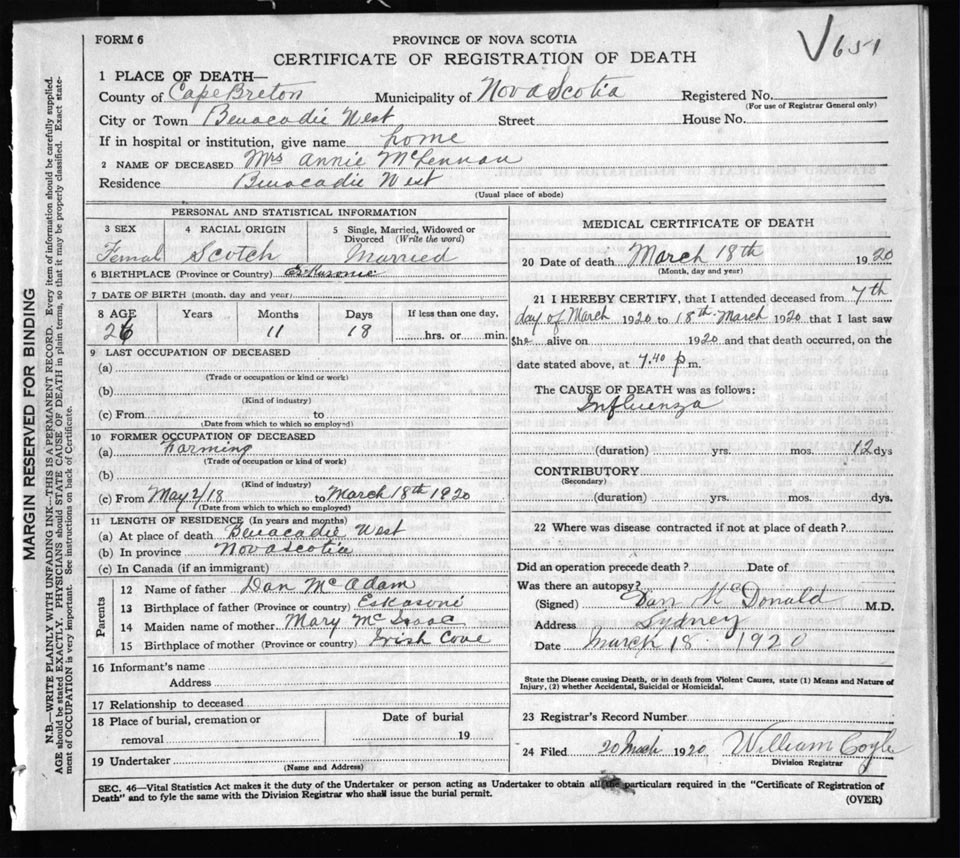 FORM 6
PROVINCE OF NOVA SCOTIA
√651
CERTIFICATE OF REGISTRATION OF DEATH
1 PLACE OF DEATH—
County of Cape Breton Municipality of Nova Scotia Registered No.
(For use of Registrar General only)
City or Town Benacadie West Street House No.
If in hospital or institution, give name home
2 NAME OF DECEASED Mrs Annie McLennan
Residence Benacadie West
(Usual place of abode)
PERSONAL AND STATISTICAL INFORMATION
3 SEX 4 RACIAL ORIGIN 5 Single, Married, Widowed or Divorced (Write the word)
Femal Scotch Married
6 BIRTHPLACE (Province or Country) Eskasonie
7 DATE OF BIRTH (month, day and year)
8 AGE Years Months Days If less than one day,
26 11 18 hrs. or min.
9 LAST OCCUPATION OF DECEASED
(a)
(Trade or occupation or kind or work)
(b)
(Kind of industry)
(c) From to
(Date from which to which so employed)
10 FORMER OCCUPATION OF DECEASED
(a) Farming
(Trade or occupation or kind of work)
(b)
(Kind of industry)
(c) From May 2/18 to March 18th 1920
(Date from which to which so employed)
11 LENGTH OF RESIDENCE (In years and months)
(a) At place of death Benacadie West
(b) In province Nova Scotia
(c) In Canada (if an immigrant)
Parents
12 Name of father Dan McAdam
13 Birthplace of father (Province or country) Eskasoni
14 Maiden name of mother Mary McIsaac
15 Birthplace of mother (Province or country) Irish Cove
16 Informant's name
Address
17 Relationship to deceased
18 Place of burial, cremation or removal
Date of burial
19
19 Undertaker
(Name and Address)
MEDICAL CERTIFICATE OF DEATH
20 Date of death March 18th 1920
(Month, day and year)
21 I HEREBY CERTIFY, that I attended deceased from 7th
day of March 1920 to 18th March 1920 that I last saw
She alive on 1920 and that death occurred, on the
date stated above, at 7.40 p m.
The CAUSE OF DEATH was as follows:
Influenza
(duration) yrs. mos. 12 dys
CONTRIBUTORY
(Secondary)
(duration) yrs. mos. dys.
22 Where was disease contracted if not at place of death?
Did an operation precede death? Date of
Was there an autopsy?
(Signed) Dan McDonald M.D.
Address Sydney
Date March 18 1920
State the Disease causing Death, or in death from Violent Causes, state (1) Means and Nature of
Injury, (2) whether Accidental, Suicidal or Homicidal.
23 Registrar's Record Number
24 Filed 20 March 1920 William Coyle
Division Registrar
SEC. 46—Vital Statistics Act makes it the duty of the Undertaker or person acting as Undertaker to obtain all the particulars required in the "Certificate of Registration of
Death" and to fyle the same with the Division Registrar who shall issue the burial permit.
(OVER)
MARGIN RESERVED FOR BINDING
N.B.—WRITE PLAINLY WITH UNFADING INK—THIS IS A PERMANENT RECORD. Every item of information should be carefully supplied.
AGE should be stated EXACTLY. PHYSICIANS should STATE CAUSE OF DEATH in plain terms, so that it may be properly classified. Exact state-
ment of OCCUPATION is very important. See instructions on back of Certificate.